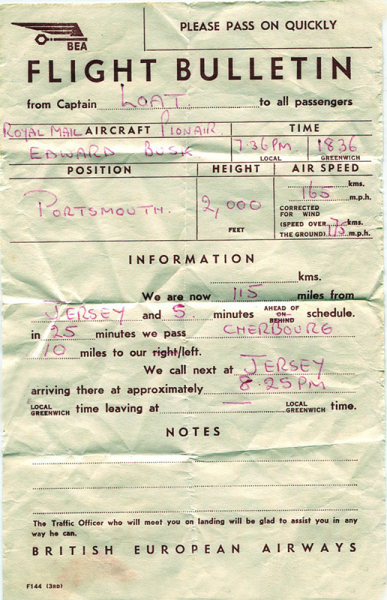 BEA
PLEASE PASS ON QUICKLY
FLIGHT BULLETIN
from Captain LOAT. to all passengers
ROYAL MAIL AIRCRAFT PIONAIR TIME
EDWARD BUSK 7.36PM. LOCAL 1836 GREENWICH
POSITION HEIGHT AIR SPEED
PORTSMOUTH. 2,000 FEET kms.
165 m.p.h.
CORRECTED FOR WIND
(SPEED OVER kms.
THE GROUND) 175 m.p.h.
INFORMATION
kms.
We are now 115 miles from
JERSEY and 5 minutes AHEAD OF ON BEHIND schedule.
in 25 minutes we pass CHERBOURG
10 miles to our right/left.
We call next at JERSEY
arriving there at approximately 8.25PM
LOCAL GREENWICH time leaving at — LOCAL GREENWICH time.
NOTES
The Traffic Officer who will meet you on landing will be glad to assist you in any
way he can.
BRITISH EUROPEAN AIRWAYS
F144 (3RD)